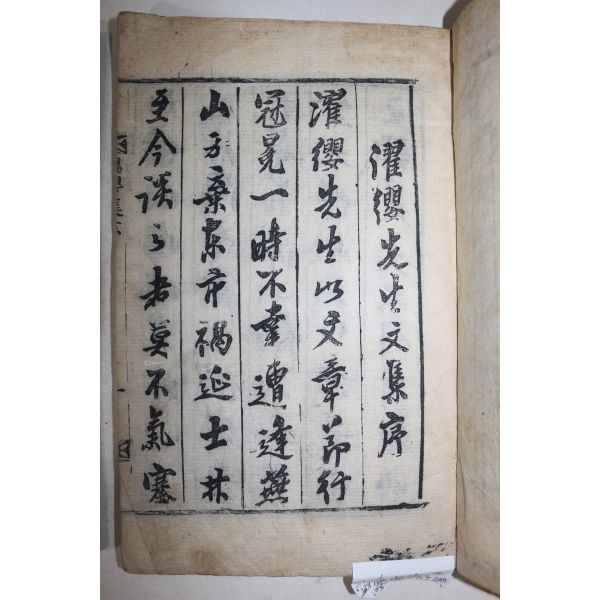 濯纓先生文集序
濯纓先生以文章節行
冠冕一時不幸遭逢燕
山方棄東市禍延士林
至今談之者莫不氣塞